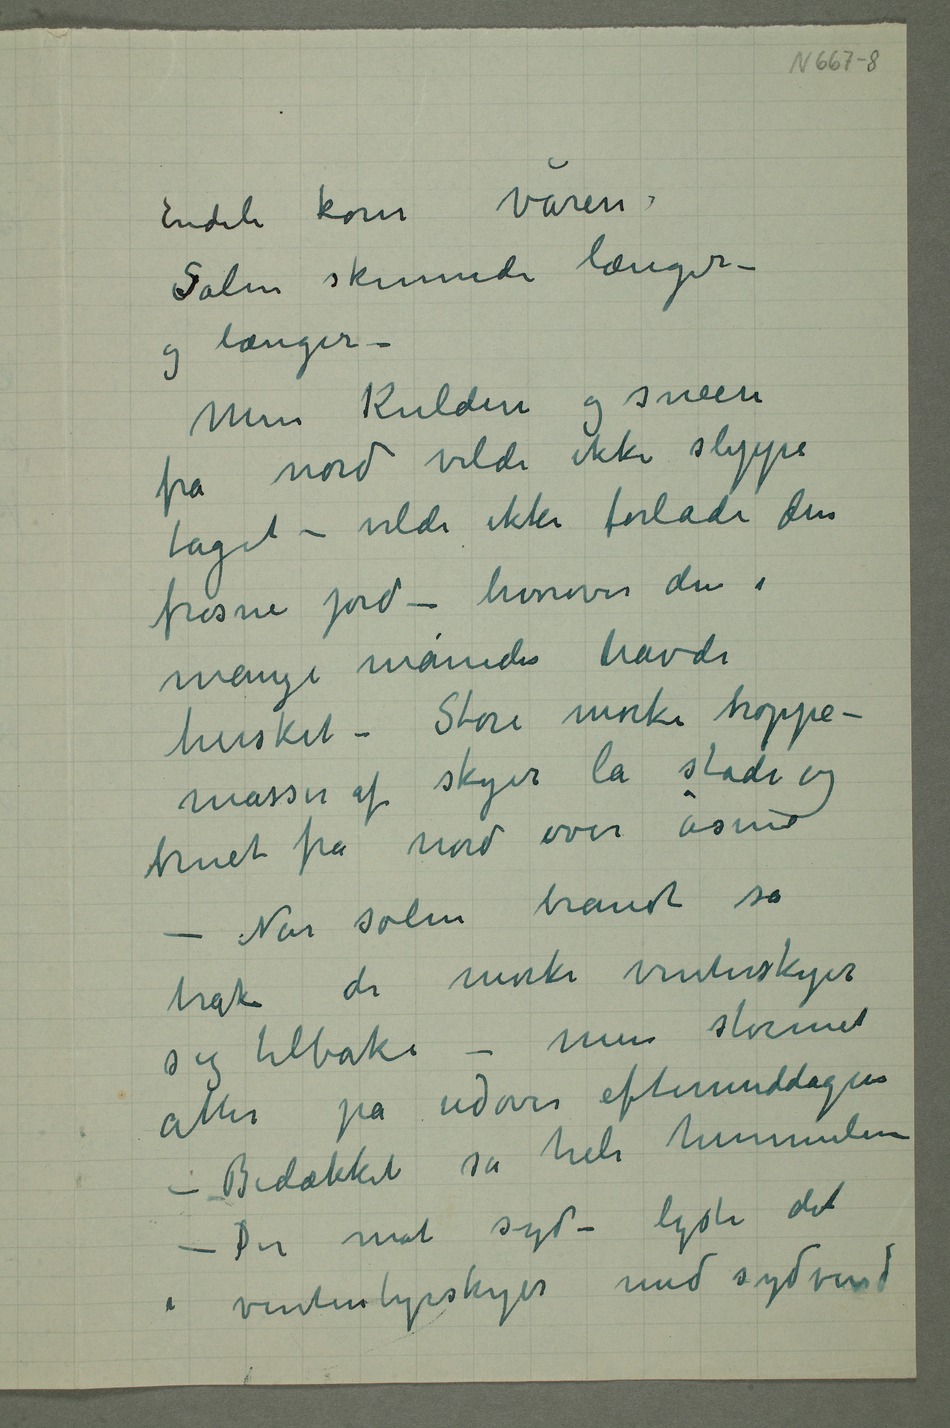 N 667-8
Endeli kom våren,
Solen skinnede længer –
og længer –
Men Kulden og sneen
fra nord vilde ikke slyppe
taget – vilde ikke forlade den
frosne jord – hvorover den i
mange måneder havde
hersket – Store mørke troppe–
masser af skyer la stade og
truet fra nord over åsene
– Når solen brandt så
trak de mørke vinterskyer
sig tilbake – men stormet
atter på udover eftermiddagen
– Bedækket så hele himmelen
– Der mot syd – lyste det
i vinterlyse skyer med sydvind